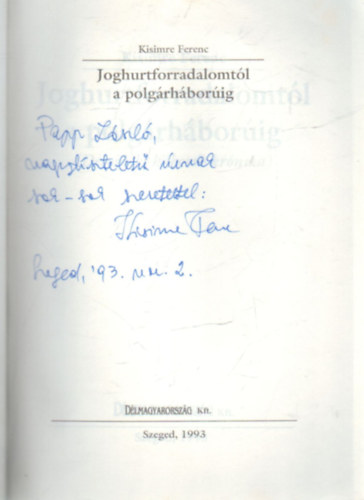 Kisimre Ferenc
Joghurtforradalomtól
a polgárháborúig
Papp László,
nagytiszteletű úrnak
sok-sok szeretettel:
Kisimre Fere
Szeged, '93. 2.
DÉLMAGYARORSZÁG Kft.
Szeged, 1993